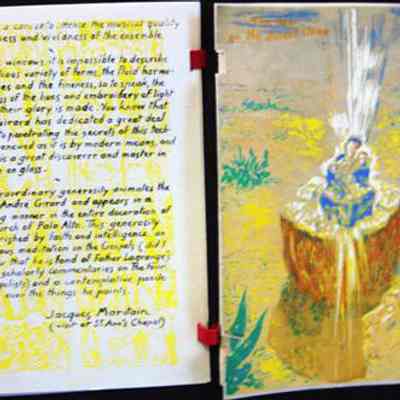 a concerto. Hence the musical quality
ness and vividness of the ensemble.
windows, it is impossible to describe
lious variety of forms, the fluid harmo-
ies and the fineness, so to speak, the
ss of the hues and embroidery of light
their glory is made. You know that
Girard has dedicated a great deal
to penetrating the secrets of this tech-
renewed as it is by modern means, and
is a great discoverer and master in
on glass.
raordinary generosity animates the
André Girard and appears in a
ng manner in the entire decoration of
urch of Palo Alto. This generosity
rished by faith and intelligence, an
ous meditation on the Gospels (did I
that he is fond of Father Lagrange's
scholarly commentaries on the four
elists) and a contemplative
over the things he paints.
Jacques Maritain
(visit at St Ann's Chapel)